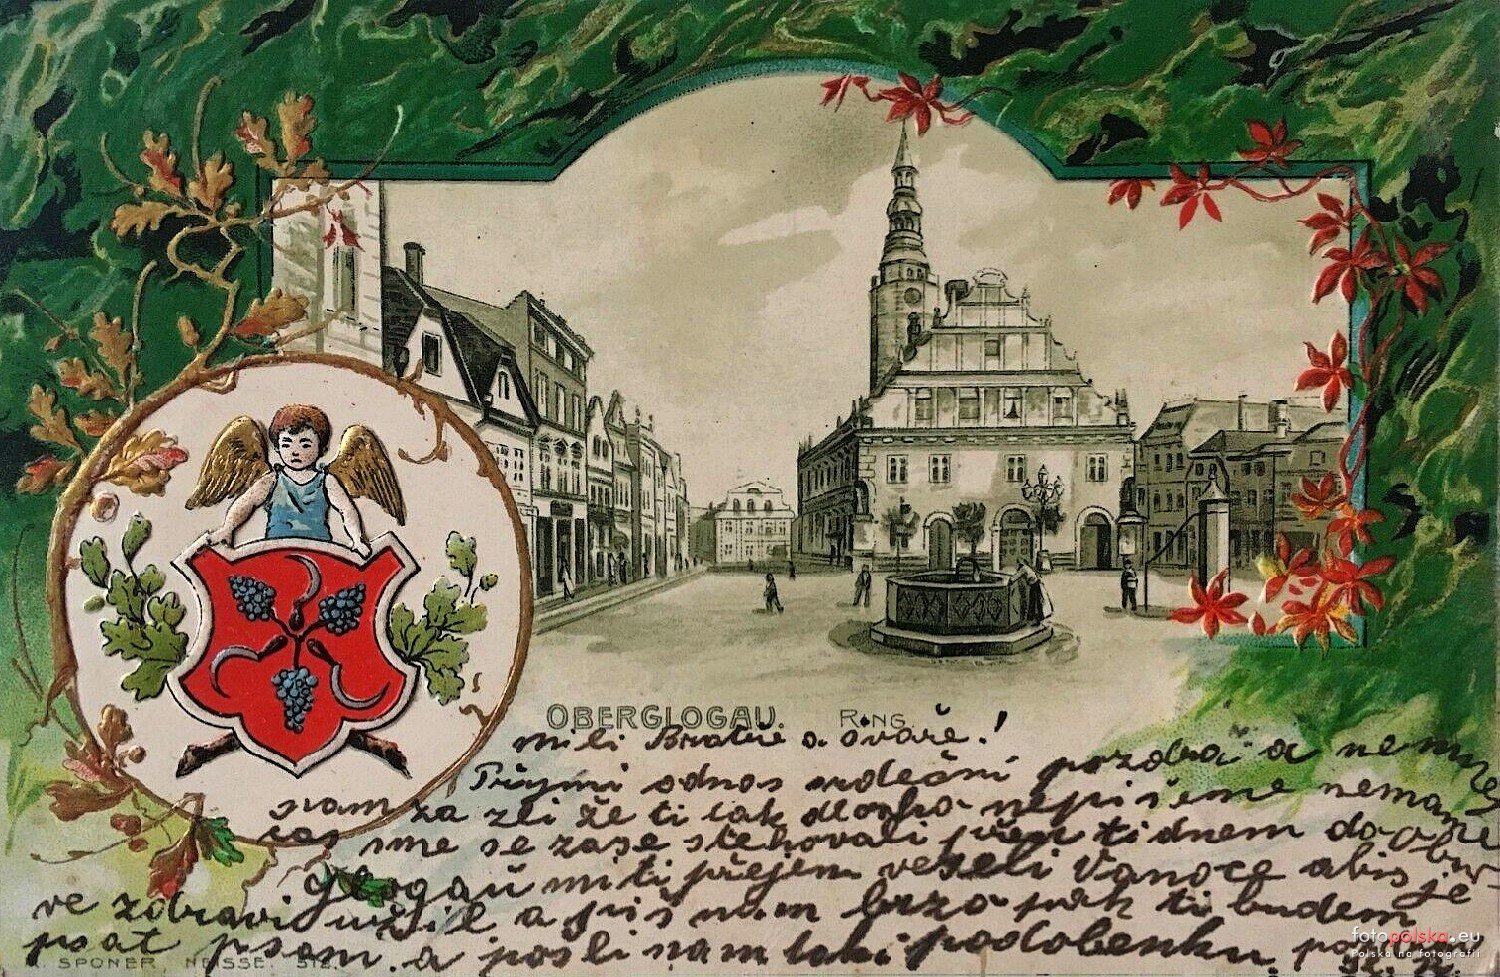 OBERGLOGAU. RING.
mili Bratře a
odnos srdeční pozdra a
nam za zli že ti tak dloho nepišeme nemame
čas sme se zase stehovali do
Glogau mi ti přejem veseli Vanoce abis je
ve zdravi užil a piš nam brzo pak ti budem
psat psam. a posli nam taki podobenku
SPONER, NEISSE. 512.
fotopolska.eu
Polska na fotografii